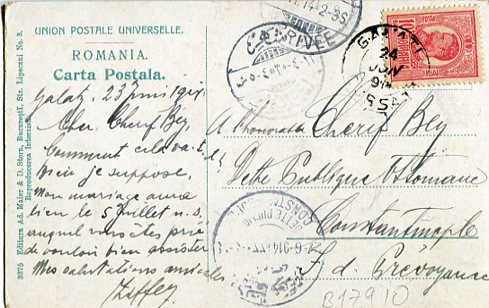 UNION POSTALE UNIVERSELLE.
ROMANIA.
Carta Postala.
3375 Editura Ad. Maier & D. Stern, Bucureşti, Str. Lipscani No. 3.
Reproducerea Interzisă
Galatz, 23 Juni 191
Cher Cherif Bey,
Comment cela va-t-il
bien je suppose.
Mon mariage aura
lieu le 5 Juillet n.s.
auquel vous êtes prié
de vouloir bien assister
Mes salutations amicales
A
Cherif Bey
Dette Publique Ottomane
Constantinople
S. d. Prévoyance
GALATI
24
JUN
914
ARRIVEE
B17910